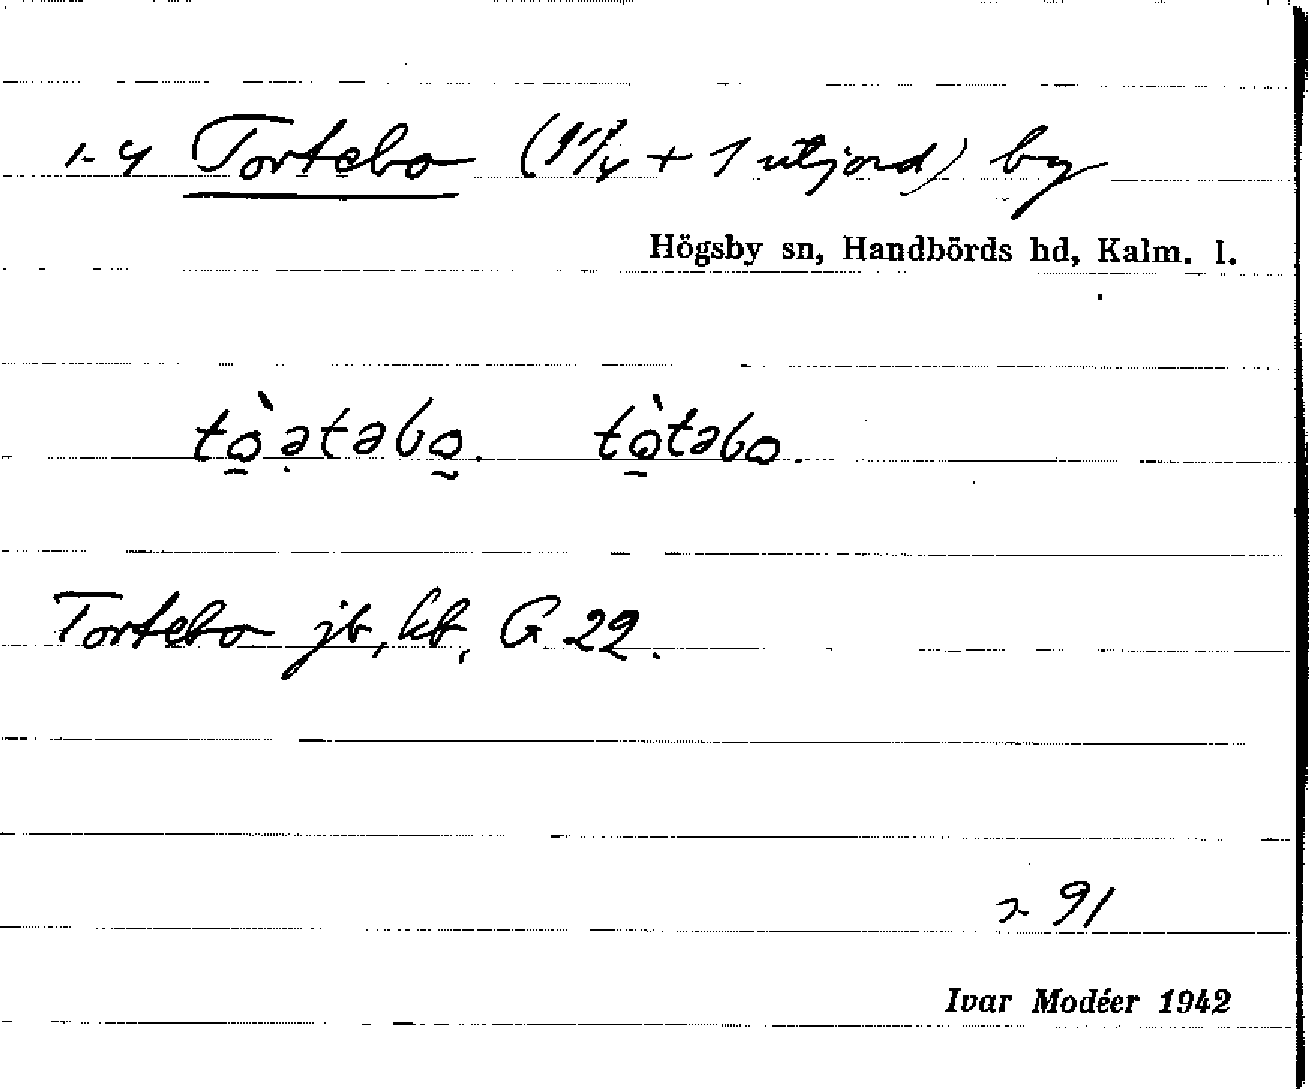 1-4 Tortebo (1 1/4 + 1 utjord) by
Högsby sn, Handbörds hd, Kalm. l.
tò̱ə̣təbo̰. tò̱təbo.
Tortebo jb, kb, G 22.
91
Ivar Modéer 1942